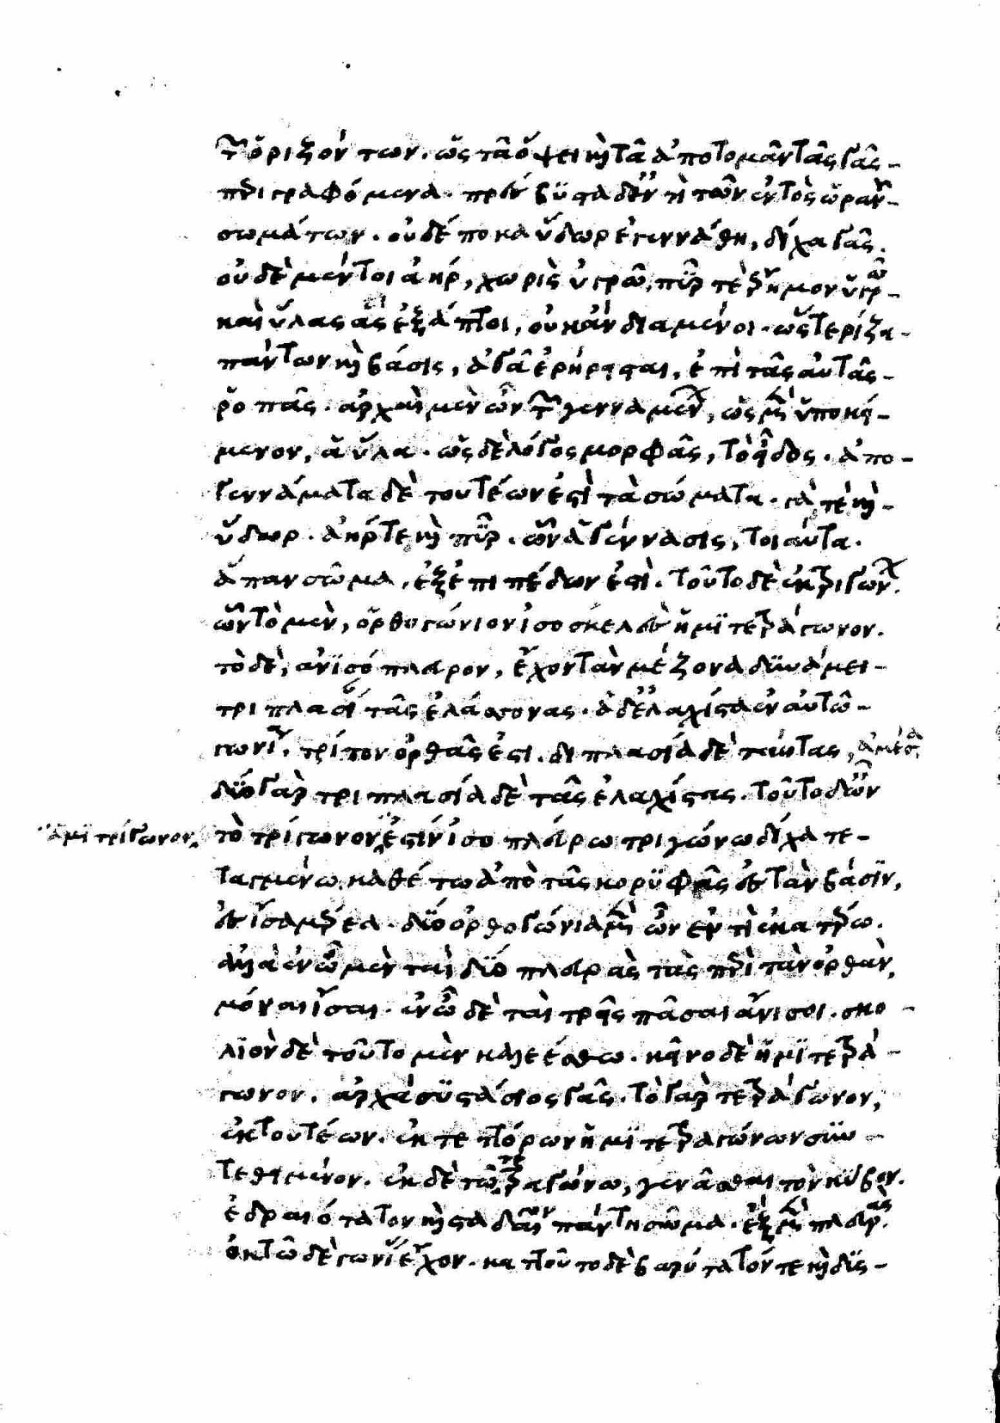 τῶν ὁριζόντων. ὡς τᾷ ὄψει καὶ τᾷ ἀποτομᾷ τᾶς γᾶς
περιγραφόμενα. πρεσβύτα δ' ἐντὶ τῶν ἐντὸς ὠρανῶ
σωμάτων. οὐδέ ποκα ὕδωρ ἐγεννάθη, δίχα γᾶς.
οὐδὲ μέντοι ἀήρ, χωρὶς ὑγρῶ. πῦρ τε ἔρημον ὑγρῶ
καὶ ὕλας ἃς ἐξάπτοι, οὐκ ἂν διαμένοι. ὥστε ῥίζα
πάντων καὶ βάσις, ἁ γᾶ ἐρήρεισται, ἐπὶ τᾶς αὐτᾶς
ῥοπᾶς. ἀρχαὶ μὲν ὦν τῶν γεννωμένων, ὡς μὲν ὑποκεί-
μενον, ἁ ὕλα. ὡς δὲ λόγος μορφᾶς, τὸ εἶδος. ἀπο-
γεννάματα δὲ τουτέων ἐστὶ τὰ σώματα. γᾶ τε καὶ
ὕδωρ. ἀήρ τε καὶ πῦρ. ὧν ἁ γέννασις, τοιαύτα.
ἅπαν σῶμα, ἐξ ἐπιπέδων ἐστί. τοῦτο δὲ ἐκ τριγώνων.
ὧν τὸ μὲν, ὀρθογώνιον ἰσοσκελὲς ἡμιτετράγωνον.
τὸ δὲ, ἀνισόπλευρον, ἔχον τὰν μέζονα δυνάμει
τριπλασίαν τᾶς ἐλάσσονος. ἁ δ' ἐλαχίστα ἐν αὐτῷ
γωνία, τρίτον ὀρθᾶς ἐστι. διπλασία δὲ ταύτας, ἁ μέσα.
δύο γὰρ τριπλασία δὲ τᾶς ἐλαχίστας. τοῦτο δ' ὦν
ἁμιτρίγωνον
τὸ τρίγωνον ἐστὶν ἰσοπλεύρω τριγώνω δίχα τε-
τμαμένω καθέτω ἀπὸ τᾶς κορυφᾶς ἐς τὰν βάσιν,
ἐς ἰσαμερέα δύο. ὀρθογώνια μὲν ὦν ἐντὶ ἑκατέρω.
ἀλλὰ ἐν ᾧ μὲν ταὶ δύο πλευρὰς τὰς περὶ τὰν ὀρθὰν,
μόναι ἴσαι. ἐν ᾧ δὲ ταὶ τρεῖς πᾶσαι ἄνισοι. σκα-
λινὸν δὲ τοῦτο μὲν καλεέσθω. κεῖνο δὲ ἡμιτετρά-
γωνον. ἀρχὰ συστάσιος γᾶς. τὸ γὰρ τετράγωνον,
ἐκ τουτέων. ἐκ τεττόρων ἡμιτετραγώνων συν-
τεθειμένον. ἐκ δὲ τῶ τετραγώνω, γεννᾶσθαι τὸν κύβον.
ἑδραιότατον καὶ σταδαῖον πάντη σῶμα. ἓξ μὲν πλευρὰς.
ὀκτὼ δὲ γωνίας ἔχον. καττοῦτο δὲ βαρύτατόν τε καὶ δυσ-